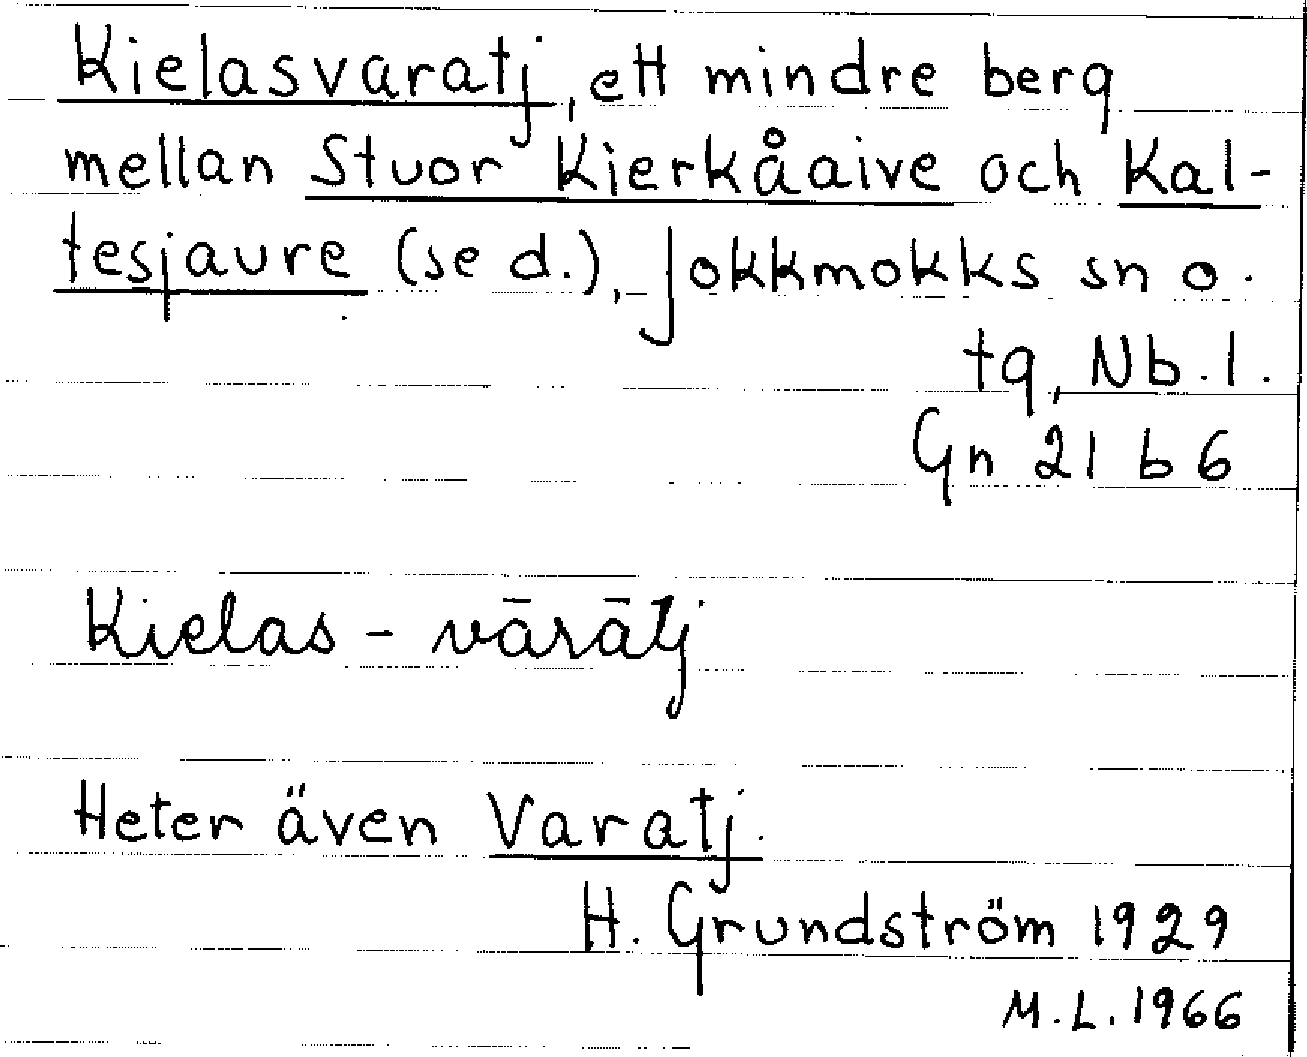 Kielasvaratj, ett mindre berg
mellan Stuor Kierkåaive och Kal-
tesjaure (se d.), Jokkmokks sn o.
tg, Nb. l.
Gn 21 b 6
Kielas - vārātj
Heter även Varatj.
H. Grundström 1929
M.L. 1966